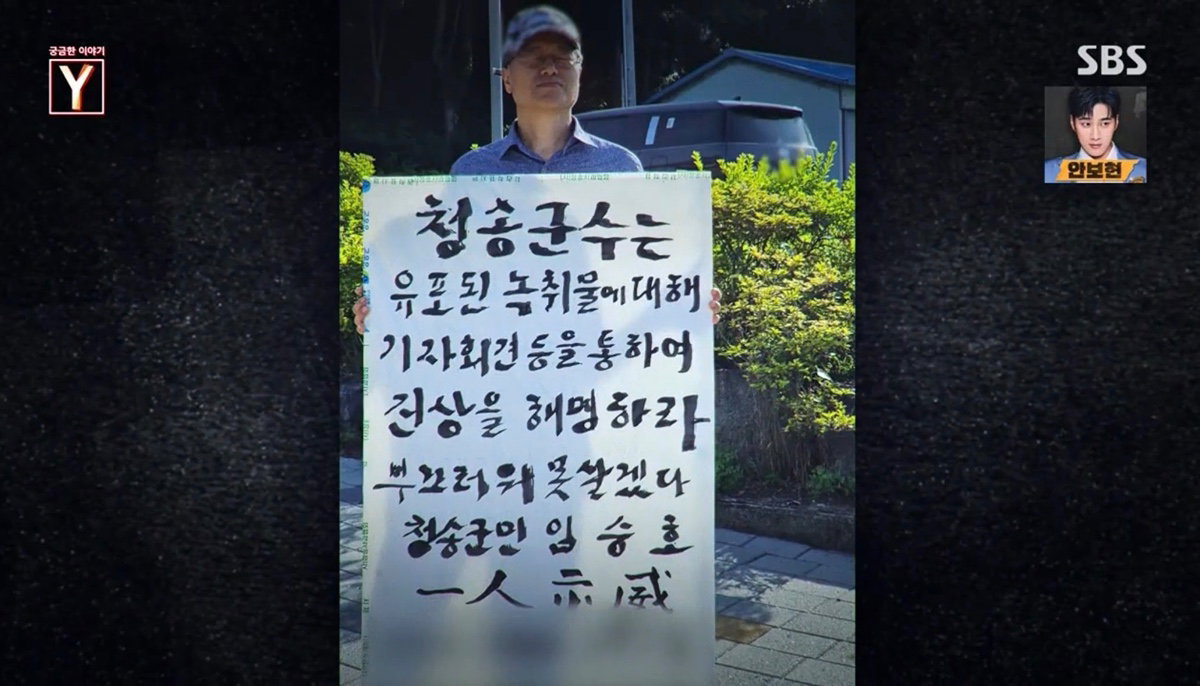 궁금한 이야기
Y
SBS
안보현
청송군수는
유포된 녹취물에대해
기자회견등을통하여
진상을 해명하라
부끄러워 못살겠다
청송군민 임승호
一人示威